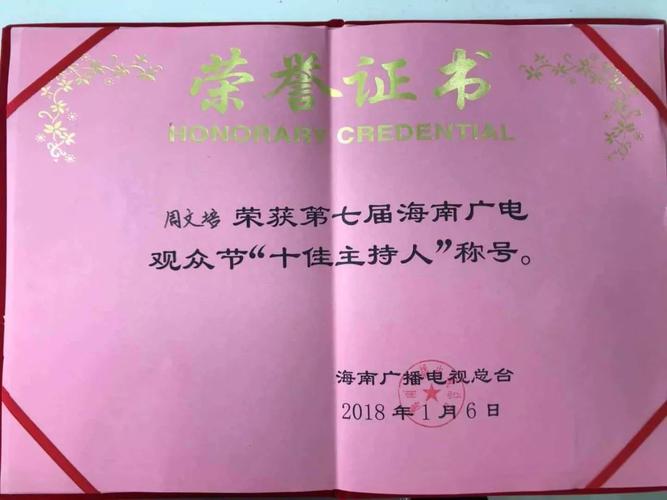 荣誉证书
HONORARY CREDENTIAL
周文培 荣获第七届海南广电
观众节“十佳主持人”称号。
海南广播电视总台
2018年1月6日